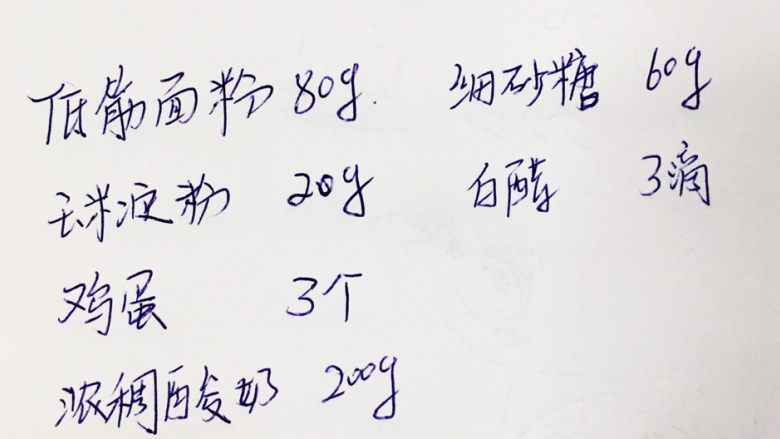 低筋面粉 80g. 细砂糖 60g
玉米淀粉 20g 白醋 3滴
鸡蛋 3个
浓稠酸奶 200g